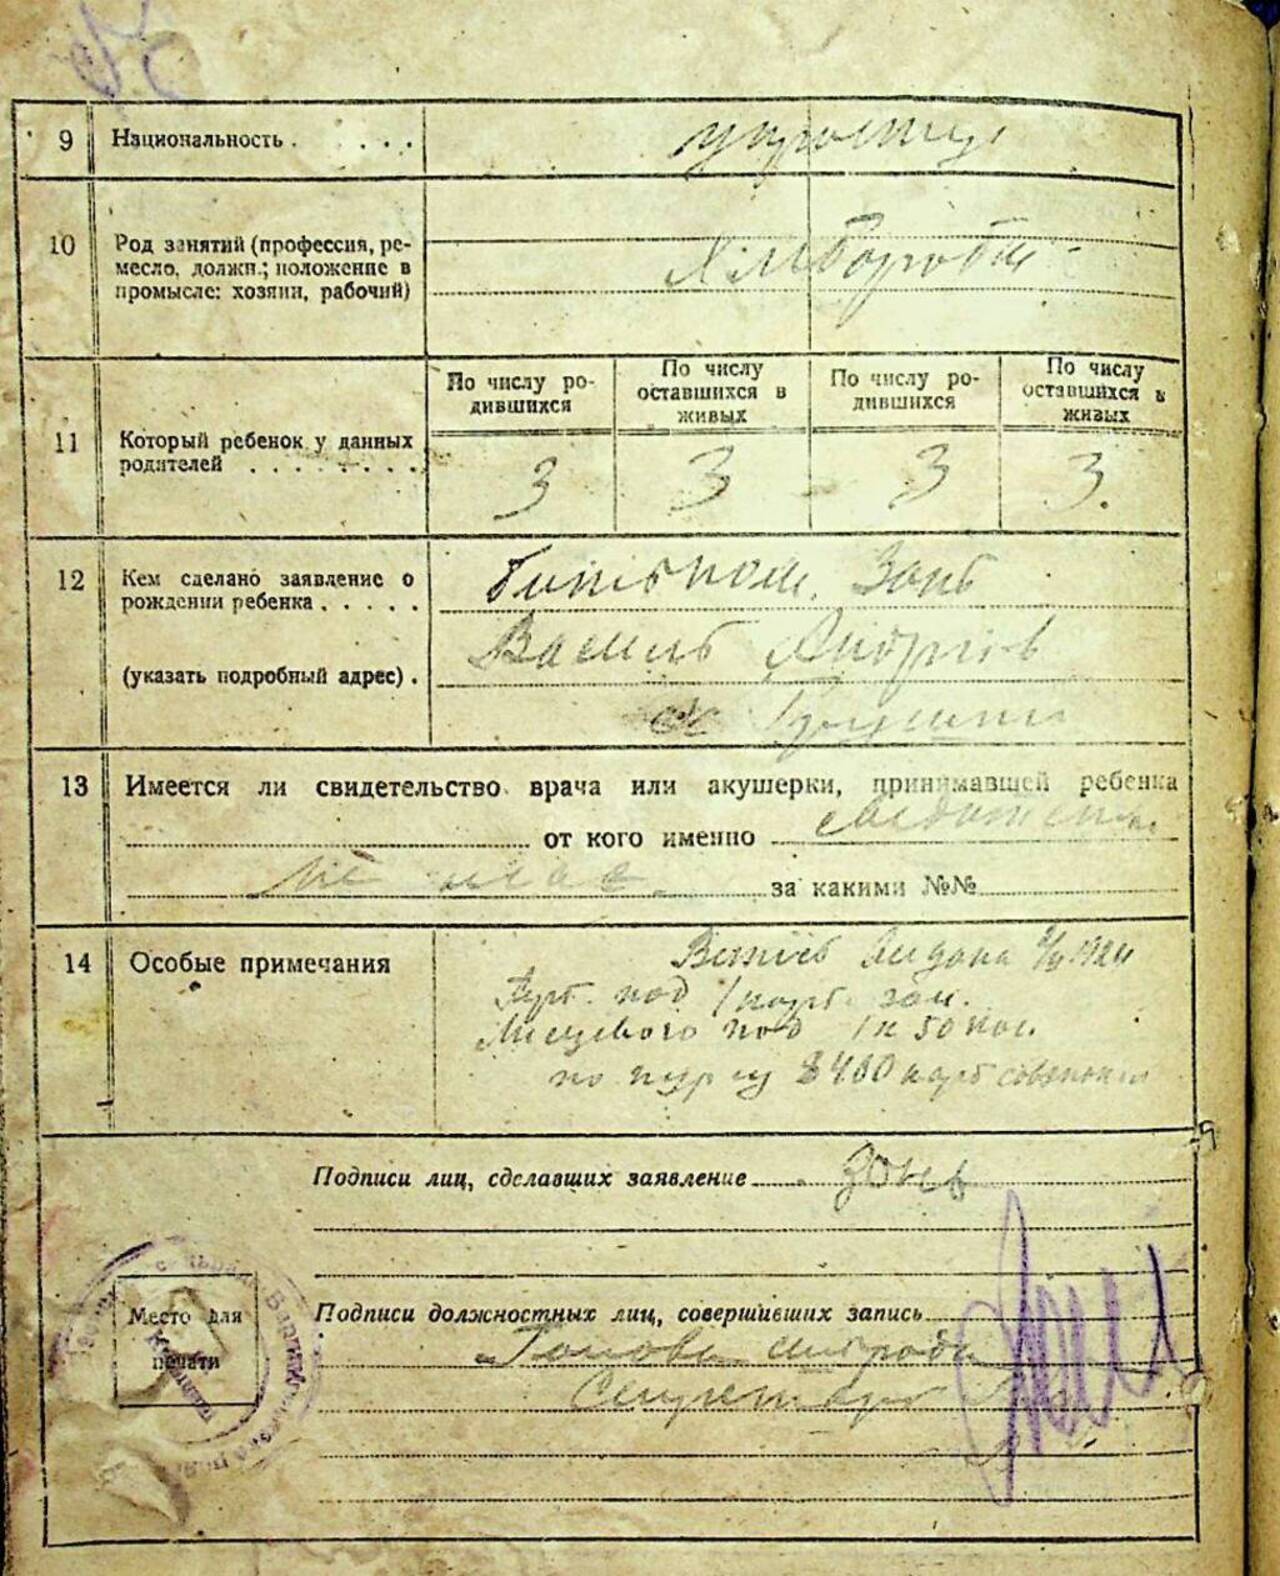 9 Национальность . . . . .
українці
10 Род занятий (профессия, ре-
месло, должн.; положение в
промысле: хозяин, рабочий)
Хлібороби
11 Который ребенок у данных
родителей . . . . . . . .
По числу ро-
дившихся
По числу
оставшихся в
живых
По числу ро-
дившихся
По числу
оставшихся в
живых
3 3 3 3.
12 Кем сделано заявление о
рождении ребенка . . . . .
(указать подробный адрес) .
Батьком. Зонь
Василь Андріїв
13 Имеется ли свидетельство врача или акушерки, принимавшей ребенка
от кого именно
не має за какими №№
14 Особые примечания
1924
под 1 карб. зол.
Місцевого под 1 к 50 коп.
по курсу карб совзнак
Подписи лиц, сделавших заявление Зонь
Место для
печати
Подписи должностных лиц, совершивших запись
Голова сільради
Секретарь